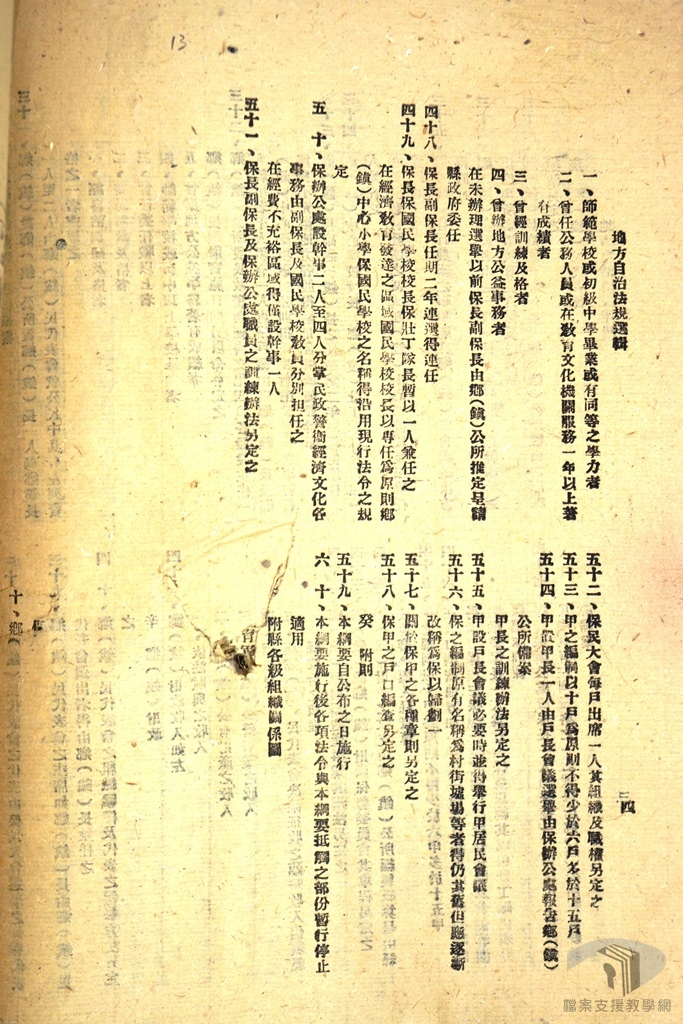 13
地方自治法規選輯
三四
一、師範學校或初級中學畢業或有同等之學力者
二、曾任公務人員或在敎育文化機關服務一年以上著
有成績者
三、曾經訓練及格者
四、曾辦地方公益事務者
在未辦理選舉以前保長副保長由鄉(鎮)公所推定呈請
縣政府委任
四十八、保長副保長任期二年連選得連任
四十九、保長保國民學校校長保壯丁隊長暫以一人兼任之
在經濟敎育發達之區域國民學校校長以專任爲原則鄉
(鎮)中心小學保國民學校之名稱得沿用現行法令之規
定
五 十、保辦公處設幹事二人至四人分掌民政警衛經濟文化各
事務由副保長及國民學校敎員分別担任之
在經費不充裕區域得僅設幹事一人
五十一、保長副保長及保辦公處職員之訓練辦法另定之
五十二、保民大會每戶出席一人其組織及職權另定之
五十三、甲之編制以十戶爲原則不得少於六戶多於十五戶
五十四、甲設甲長一人由戶長會議選舉由保辦公處報告鄉(鎮)
公所備案
甲長之訓練辦法另定之
五十五、甲設戶長會議必要時並得舉行甲居民會議
五十六、保之編制原有名稱爲村街墟場等者得仍其舊但應逐漸
改稱爲保以歸劃一
五十七、關於保甲之各種章則另定之
五十八、保甲之戶口編查另定之
癸 附則
五十九、本綱要自公布之日施行
六 十、本綱要施行後各項法令與本綱要抵觸之部份暫行停止
適用
附縣各級組織關係圖
檔案支援教學網